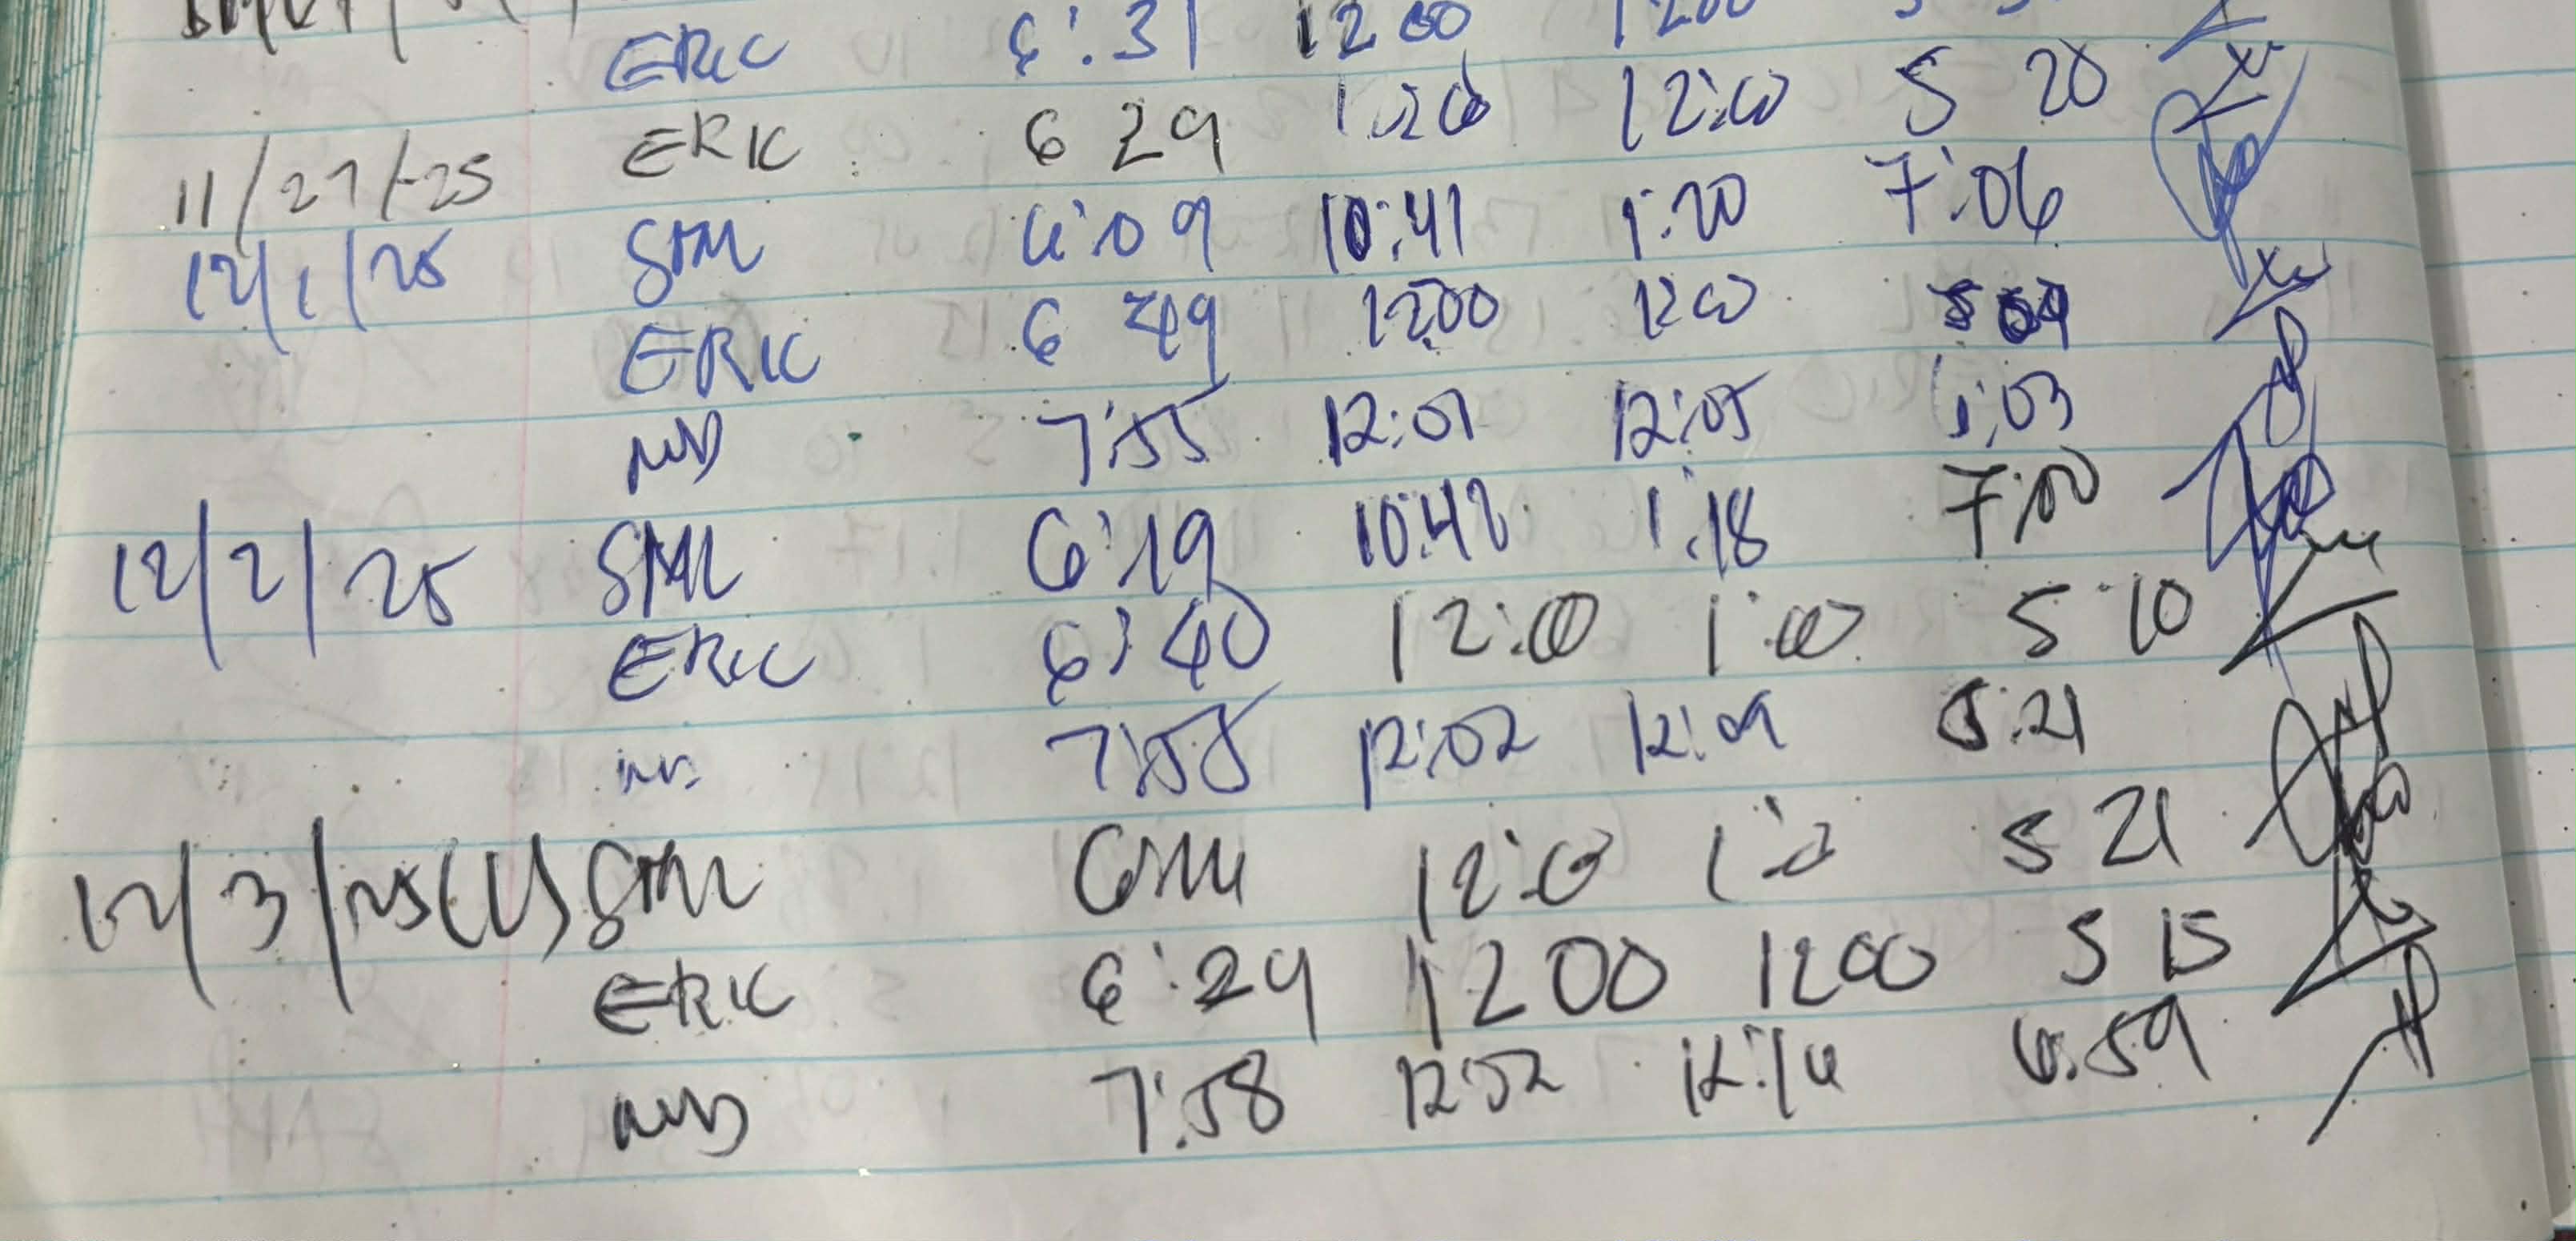 ERIC 6:31 12 00 1200
11/27/25 ERIC 6 29 12:00 5 20
12/1/25 SML 6:09 10:41 1:20 7:06
ERIC 6 49 1200 12:00 5 09
MD 7:55 12:01 12:05 5:03
12/2/25 SML 6:19 10:42 1:18 7:00
ERIC 6:40 12:00 1:00 5 10
7:58 12:02 12:09 5:21
12/3/25 SML 12:00 1:00 5 21
ERIC 6:29 1200 1200 5 15
MD 7:58 12:02 12:14 6:59